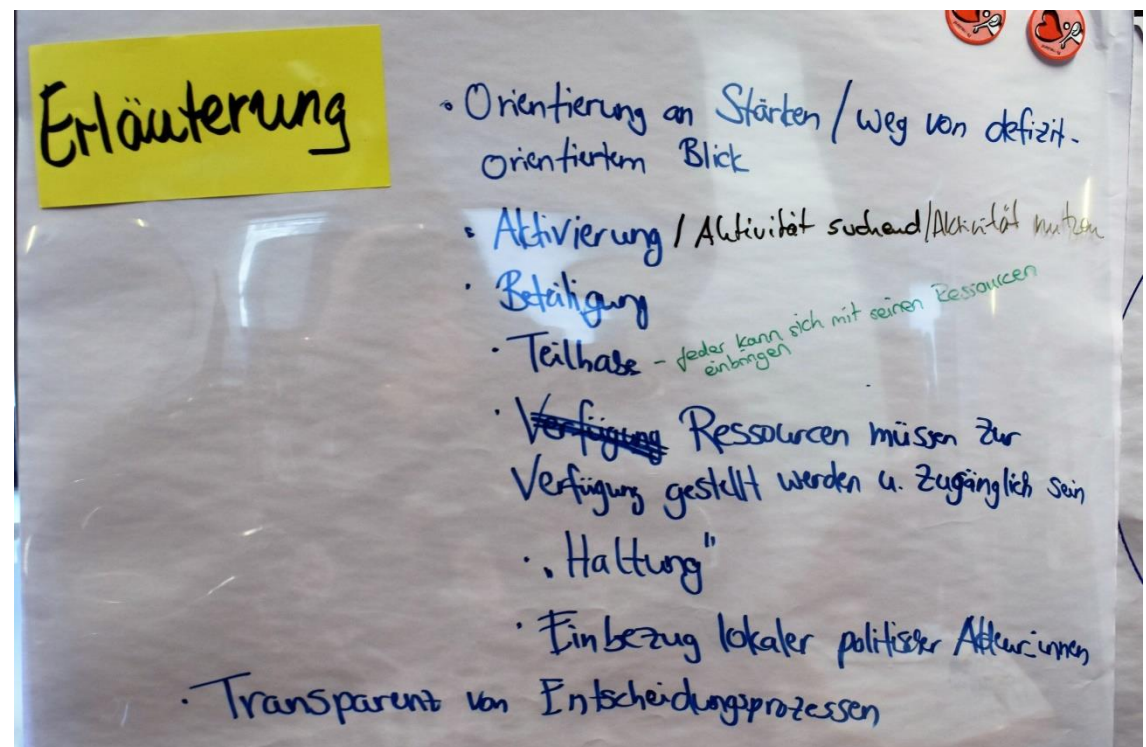 Erläuterung
• Orientierung an Stärken / weg von defizit-
orientiertem Blick
• Aktivierung / Aktivität suchend/Aktivität nutzen
• Beteiligung
• Teilhabe - Jeder kann sich mit seinen Ressourcen
einbringen
• Verfügung Ressourcen müssen zur
Verfügung gestellt werden u. zugänglich sein
• „Haltung"
• Einbezug lokaler politischer Akteur:innen
• Transparenz von Entscheidungsprozessen